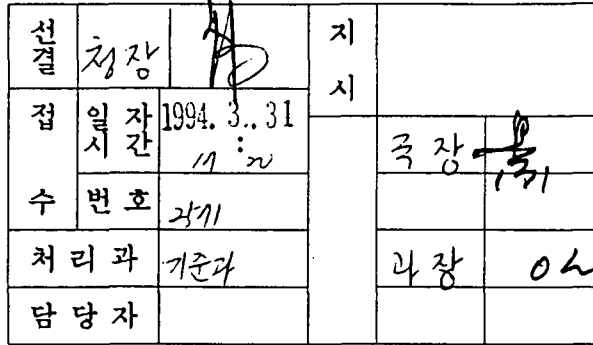 선결 청장 지시
접수 일자시간 1994. 3. . 31
:
국장
번호
처리과 기준과 과장
담당자